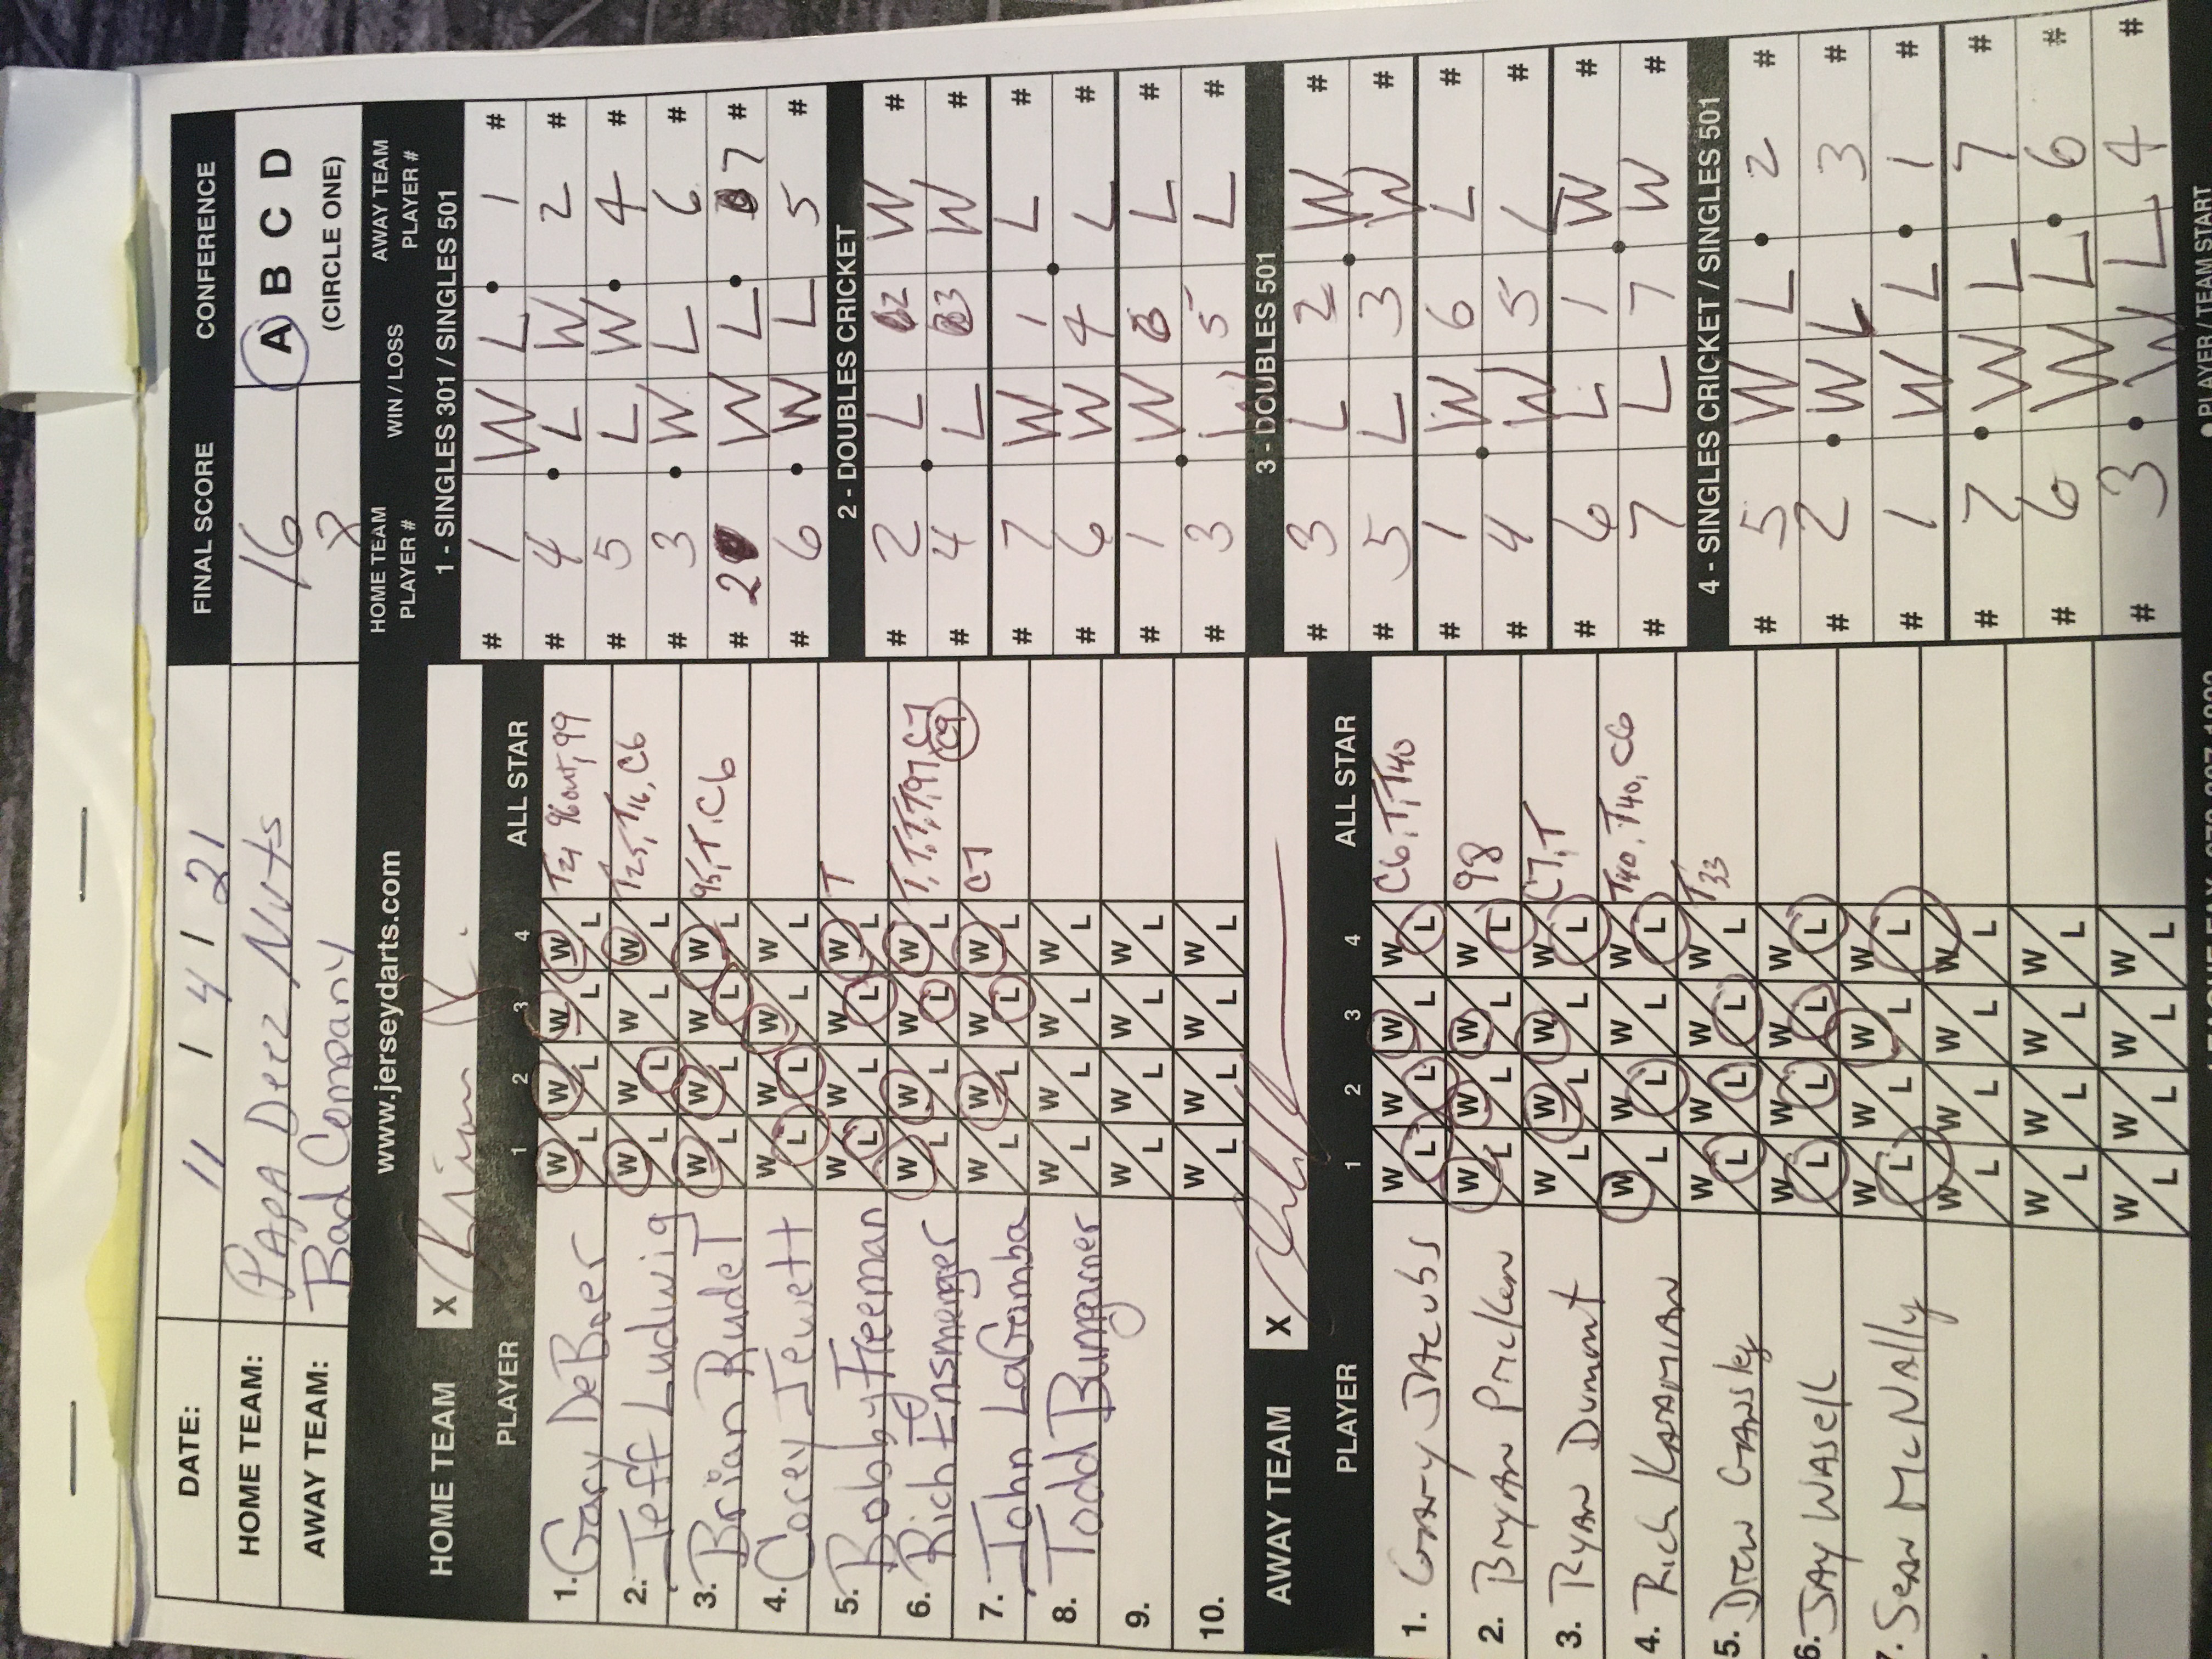 DATE: 11 / 4 / 21
FINAL SCORE CONFERENCE
HOME TEAM: PAPA Deez Nuts 16 A B C D
AWAY TEAM: Bad Company (CIRCLE ONE)
www.jerseydarts.com
HOME TEAM X
PLAYER 1 2 3 4 ALL STAR
1. Gary DeBoer W L W L W L W L T21 96out, 99
2. Jeff Ludwig W L W L W L W L T25, T16, C6
3. Brian Rudet W L W L W L W L 95, T, C6
4. Corey Jewett W L W L W L W L
5. Bobby Freeman W L W L W L W L T
6. Rich Ensmenger W L W L W L W L T, T, T, T, 97, C7
C9
7. John LaGamba W L W L W L W L C7
8. Todd Bumgarner W L W L W L W L
9. W L W L W L W L
10. W L W L W L W L
AWAY TEAM X
PLAYER 1 2 3 4 ALL STAR
1. Gary JAcobs W L W L W L W L C6, T, T40
2. BryAn Pricken W L W L W L W L 98
3. RyAn Dumont W L W L W L W L C7, T
4. Rich KArAMIAN W L W L W L W L T40, T40, C6
5. Drew GAnsky W L W L W L W L T33
6. JAy WAsell W L W L W L W L
7. SeAn McNAlly W L W L W L W L
W L W L W L W L
W L W L W L W L
W L W L W L W L
HOME TEAM PLAYER # WIN / LOSS AWAY TEAM PLAYER #
1 - SINGLES 301 / SINGLES 501
# 1 W L 1 #
# 4 L W 2 #
# 5 L W 4 #
# 3 W L 6 #
# 2 W L 7 #
# 6 W L 5 #
2 - DOUBLES CRICKET
# 2 L 2 W #
# 4 L 3 W #
# 7 W 1 L #
# 6 W 4 L #
# 1 W L #
# 3 W 5 L #
3 - DOUBLES 501
# 3 L 2 W #
# 5 L 3 W #
# 1 W 6 L #
# 4 W 5 L #
# 6 L 1 W #
# 7 L 7 W #
4 - SINGLES CRICKET / SINGLES 501
# 5 W L 2 #
# 2 W L 3 #
# 1 W L 1 #
# 7 W L 7 #
# 6 W L 6 #
# 3 W L 4 #
• PLAYER / TEAM START